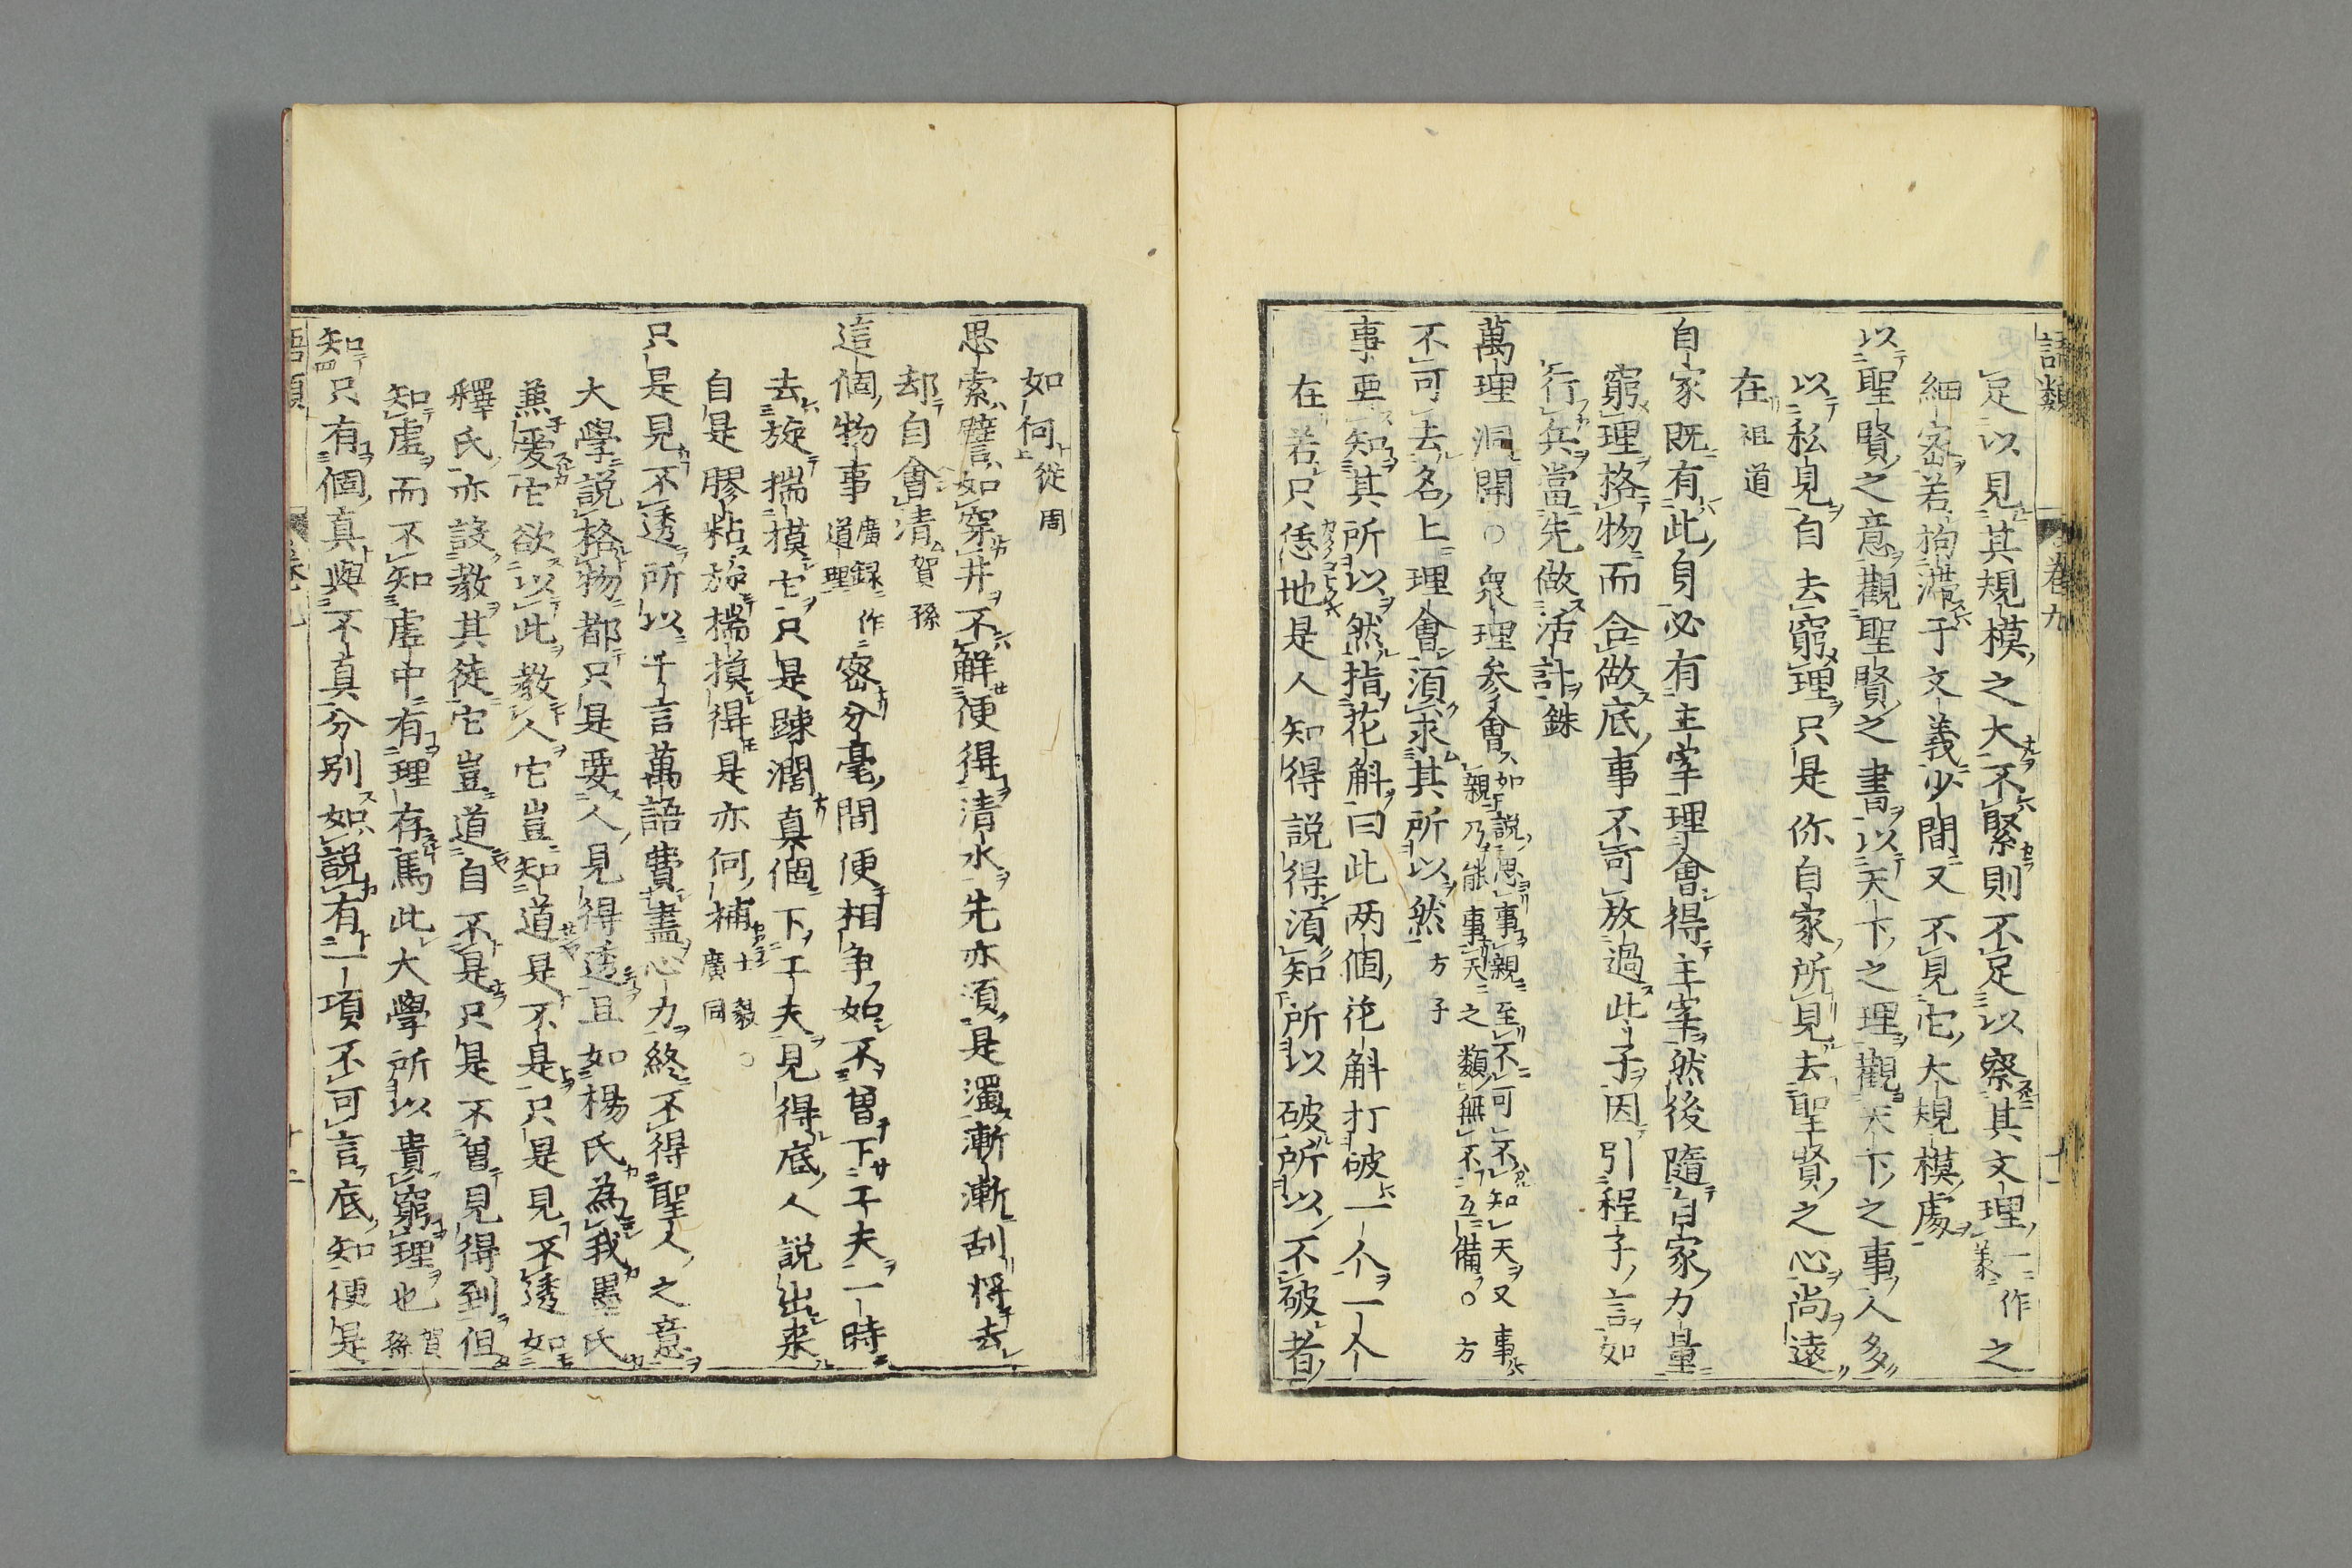 語類 卷九 十一
足以見其規模之大不緊則不足以察其文理一作義之
細密若拘滯于文義少間又不見它大規模處
以聖賢之意觀聖賢之書以天下之理觀天下之事人多
以私見自去窮理只是你自家所見去聖賢之心尚遠
在祖道
自家既有此身必有主宰理會得主宰然後隨自家力量
窮理格物而合做底事不可放過此子因引程子言如
行兵當先做活計銖
萬理洞開○衆理参會如説思事親至不可不知天又事親乃能事天之類無不互備○方
不可去名上理會須求其所以然方子
事要知其所以然指花斛曰此两個花斛打破一个一个
在若只恁地是人知得説得須知所以破所以不破者
如何從周
思索譬如穿井不解便得清水先亦須是濁漸漸刮将去
却自會清賀孫
這個物事廣録作道理密分毫間便相争如不曽下工夫一時
去旋揣摸它只是踈濶真個下工夫見得底人説出来
自是膠粘旋揣摸得是亦何補士毅○廣同
只是見不透所以千言萬語費盡心力終不得聖人之意
大學説格物都只是要人見得透且如楊氏為我墨氏
兼愛它欲以此教人它豈知道是不是只是見不透如
釋氏亦設教其徒它豈道自不是只是不曽見得到但
知虚而不知虚中有理存焉此大學所以貴窮理也賀孫
知只有個真與不真分别如説有一項不可言底知便是
語類 卷九 十二